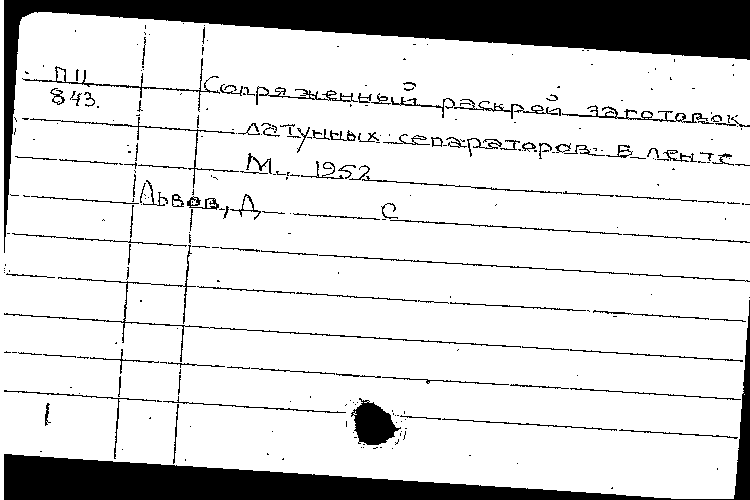 ПЦ
843.
Сопряженный раскрой заготовок
латунных сепараторов в ленте
М., 1952
Львов, Д С
1